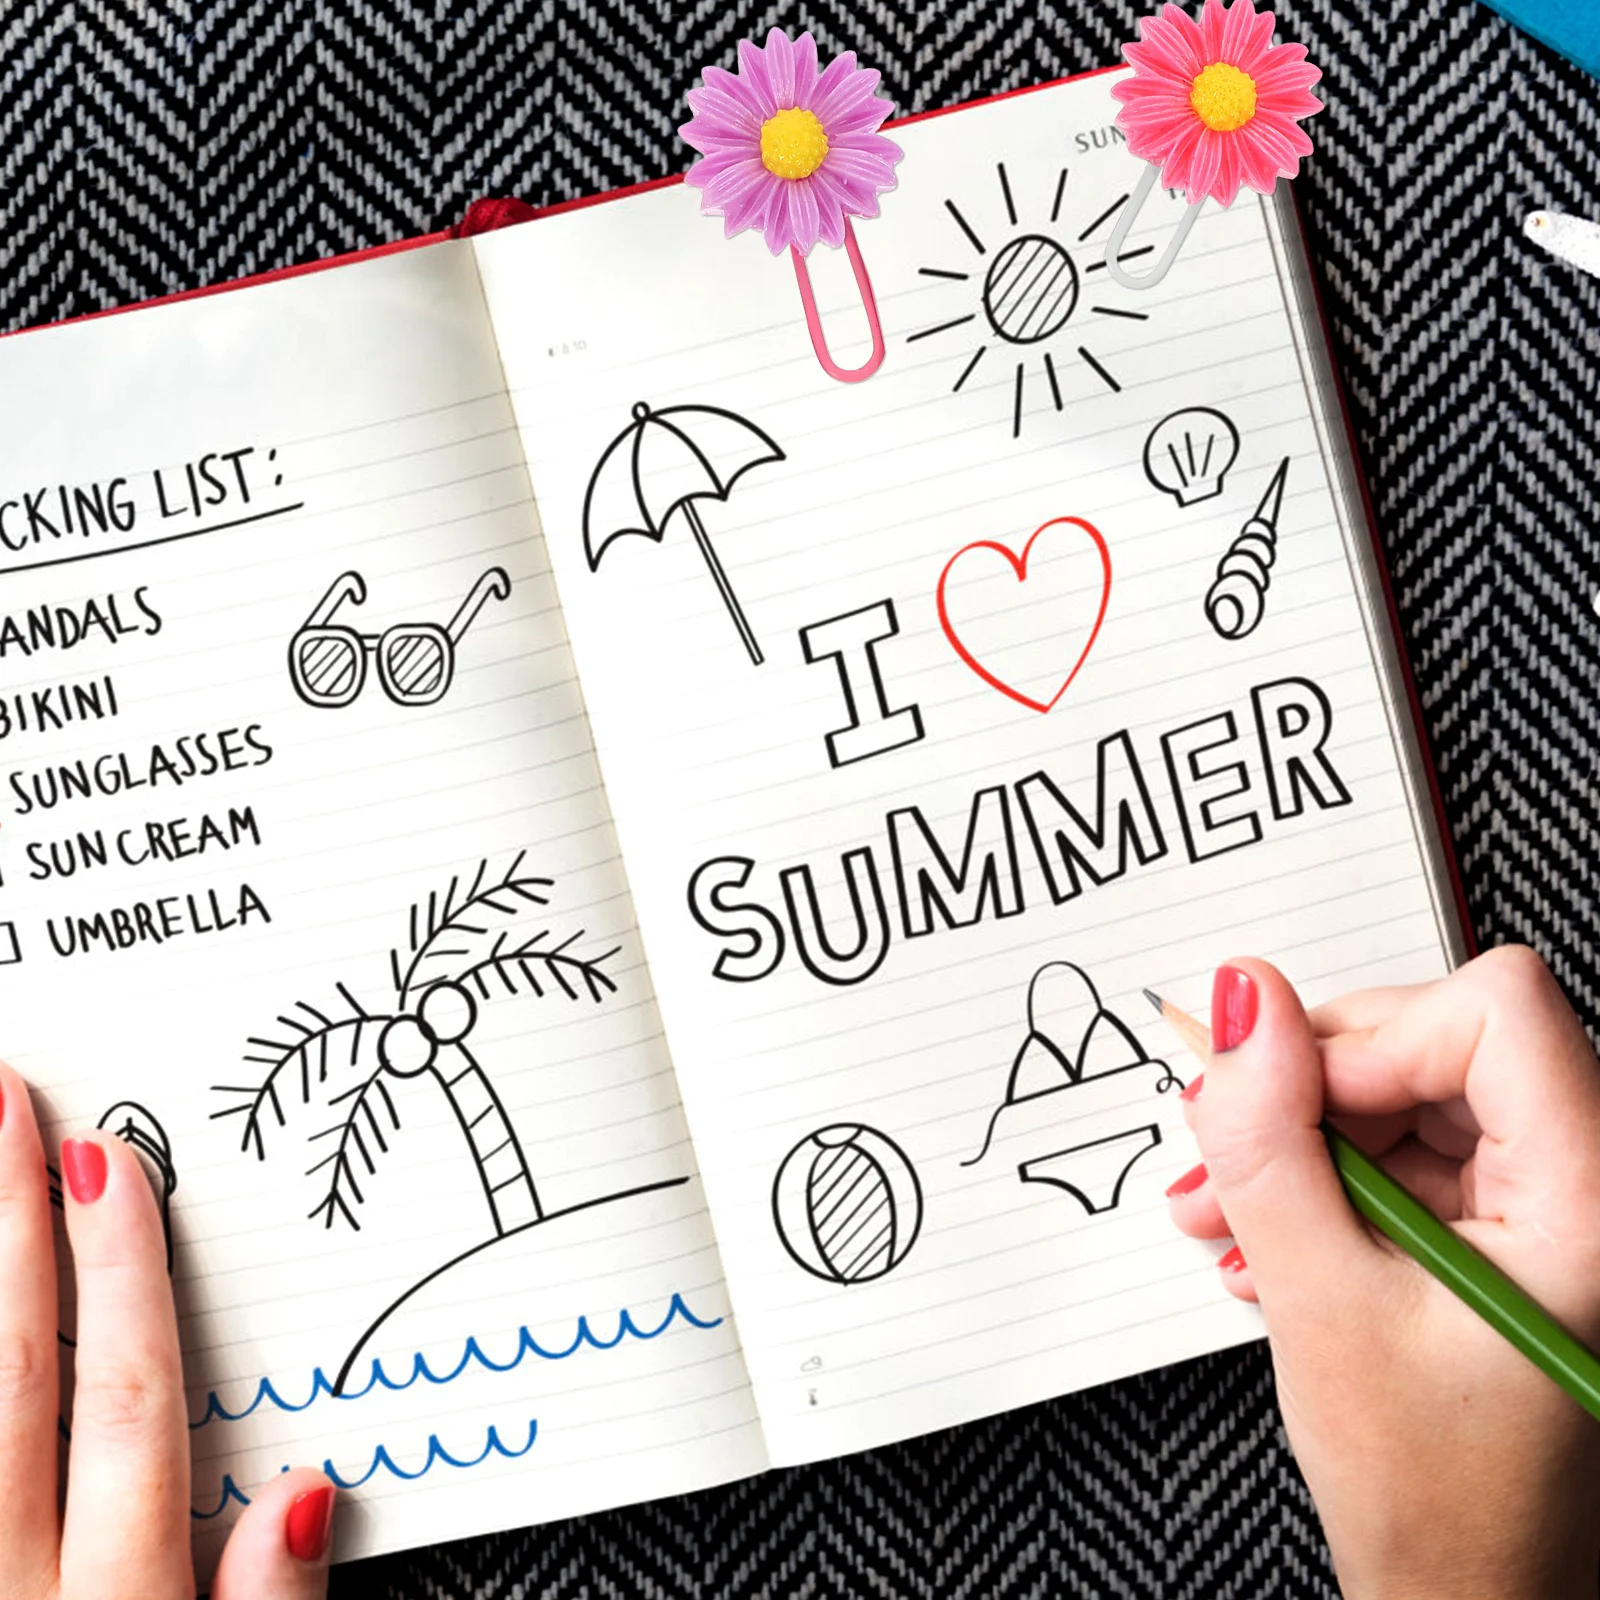 CKING LIST:
ANDALS
BIKINI
SUNGLASSES
SUN CREAM
UMBRELLA
SUN
I
SUMMER